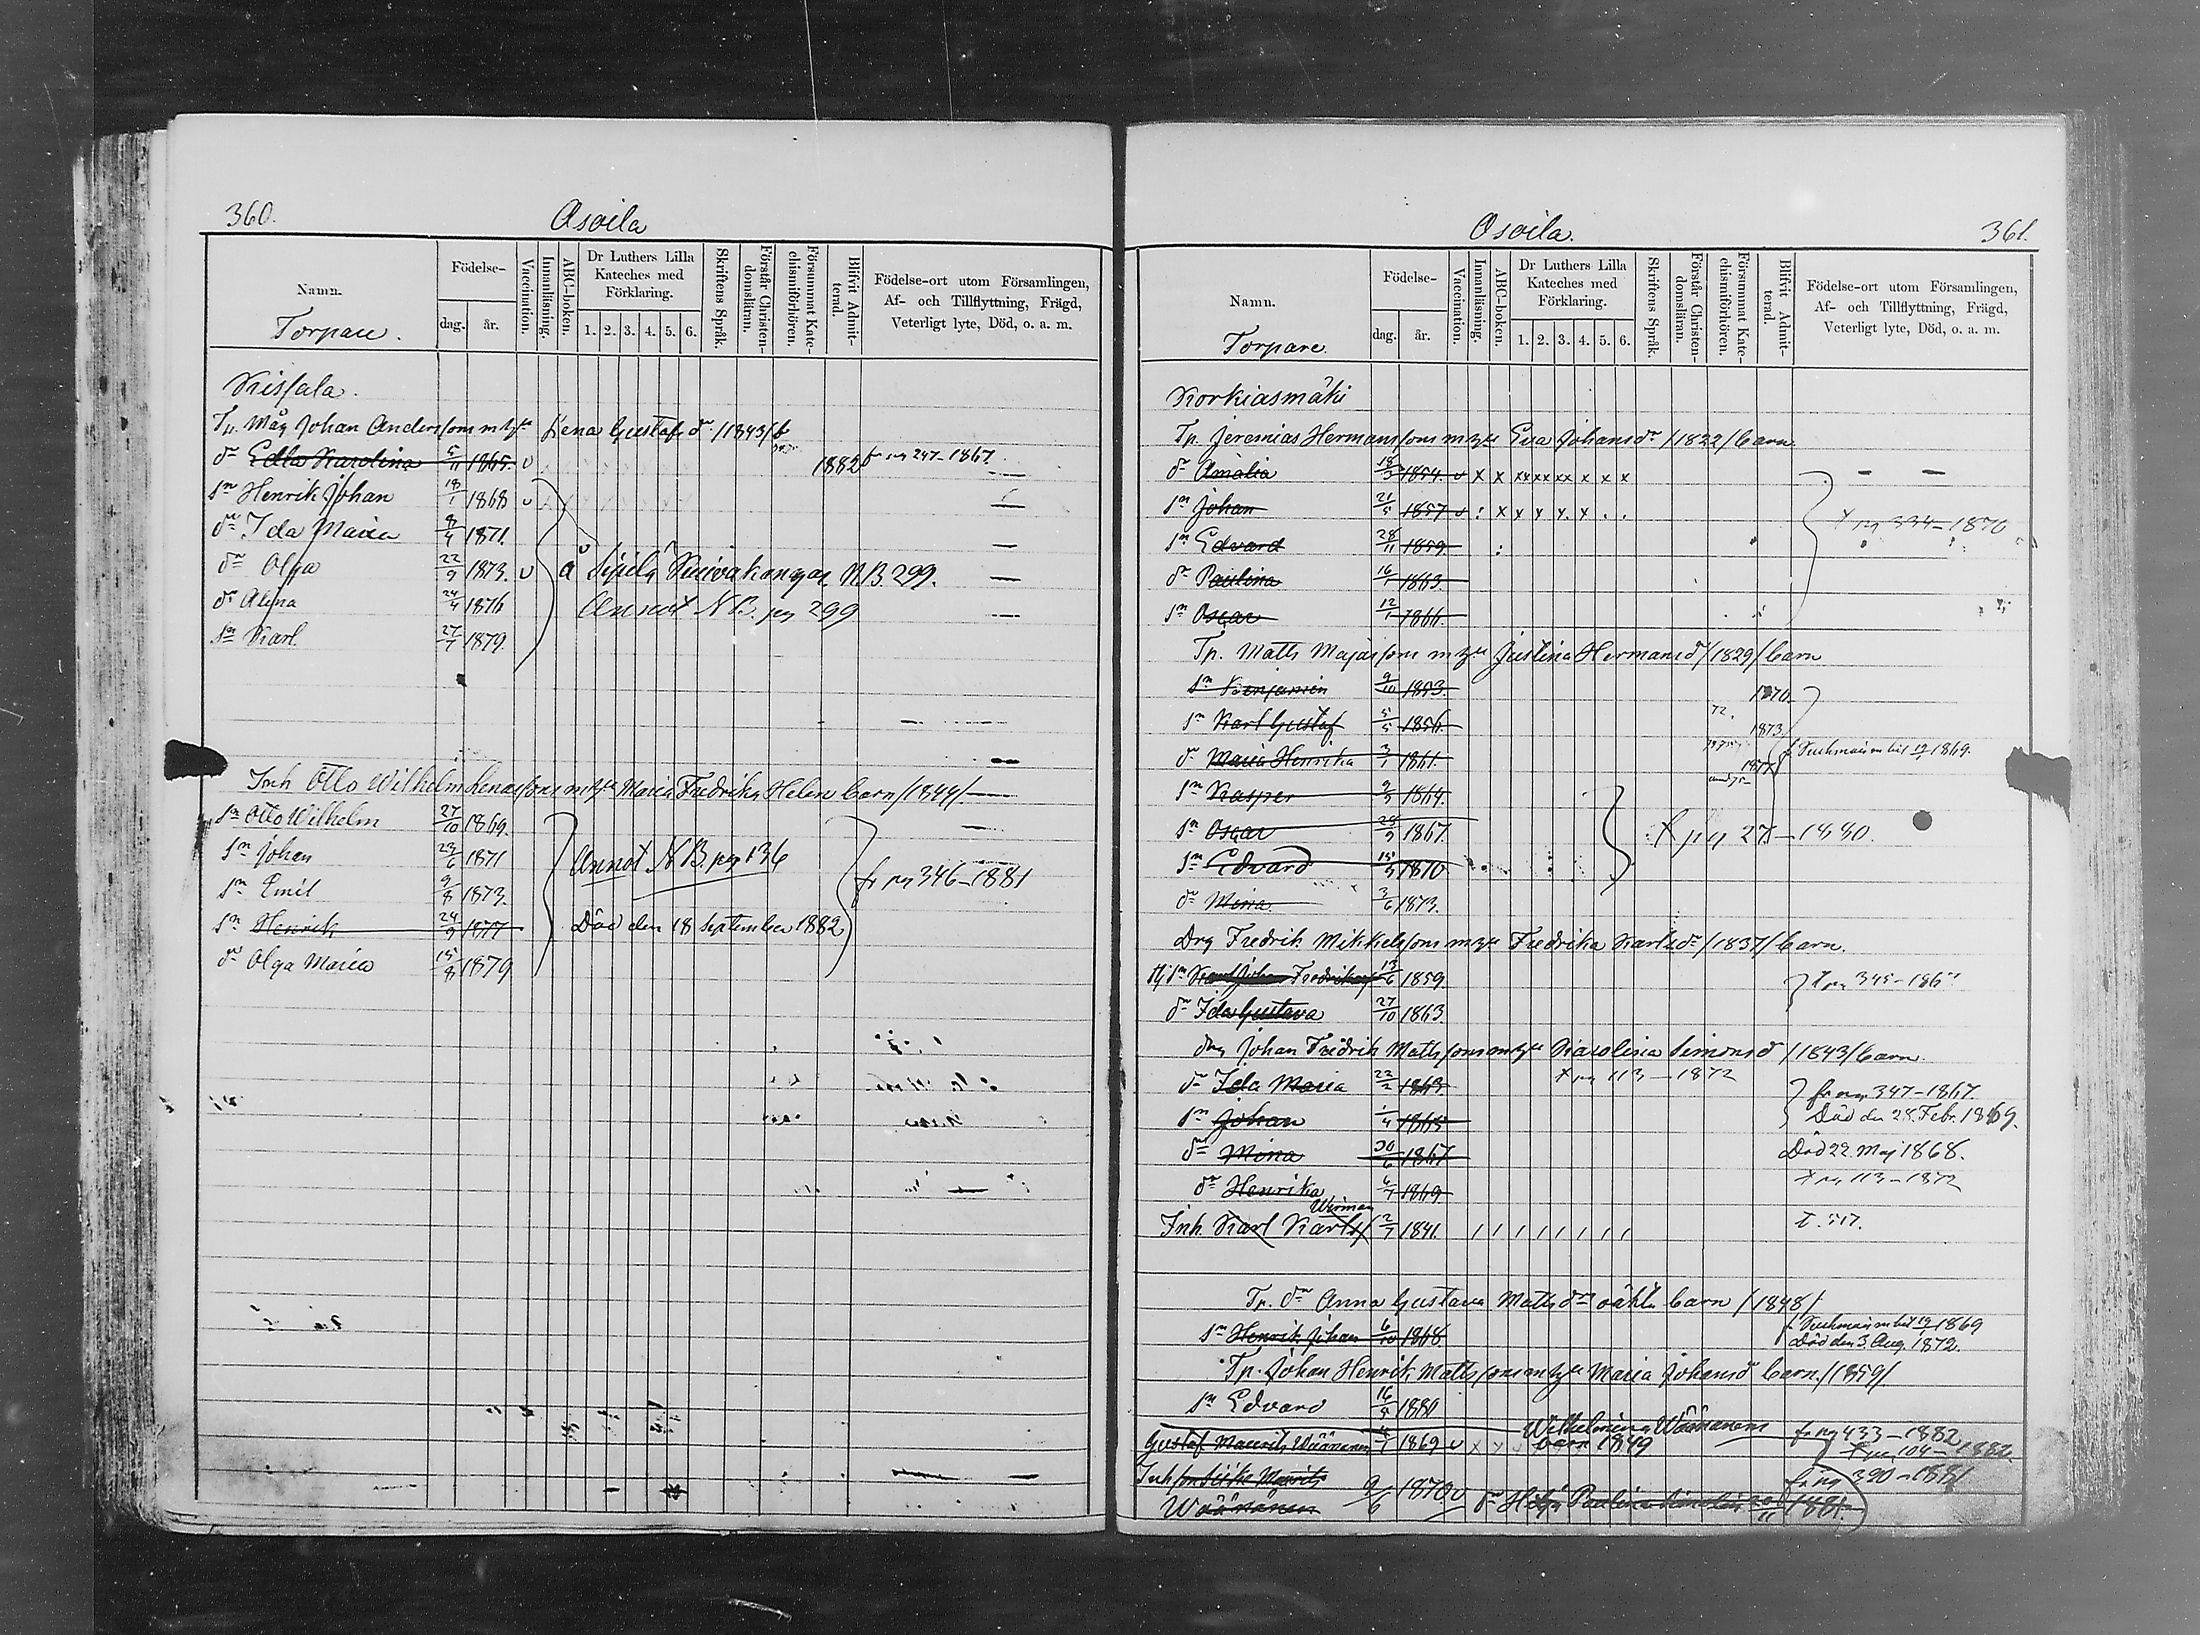 360.
Asoila
Namn.
Torpare.
Födelse-
dag.
år.
Vaccination.
Innanläsning.
ABC-boken.
Dr Luthers Lilla
Kateches med
Förklaring.
1. 2. 3. 4. 5. 6.
Skriftens Språk.
Förstår Christen-
domsläran.
Försummat Kate-
chismiförhören.
Blifvit Admit-
terad.
Födelse-ort utom Församlingen,
Af- och Tillflyttning, Frägd,
Veterligt lyte, Död, o. a. m.
Kissala.
Måg Johan Anderssons m h:u Lena Gustafsdr /1843/ b
dr Edla Karolina 5/11 1865. v 1882 fr pg 247-1867.
sn Henrik Johan 18/1 1868 v
dr Ida Maria 8/4 1871.
dr Olga 22/9 1873. v å Sipilä N.B. 299.
dr Alina 24/4 1876 Annot N.B. pg 299
sn Karl. 27/7 1879.
Inh Otto Wilhelm Lenassons m h:u Maria Fredrika Helen barn /1844/.
sn Otto Wilhelm 27/10 1869.
sn Johan 23/6 1871 Annot N.B. pg 136
sn Emil 9/8 1873. fr pg 346-1881
sn Henrik 24/9 1877 Död den 18 September 1882
dr Olga Maria 15/8 1879
Osoila.
361.
Namn.
Torpare.
Födelse-
dag.
år.
Vaccination.
Innanläsning.
ABC-boken.
Dr Luthers Lilla
Kateches med
Förklaring.
1. 2. 3. 4. 5. 6.
Skriftens Språk.
Förstår Christen-
domsläran.
Försummat Kate-
chismiförhören.
Blifvit Admit-
terad.
Födelse-ort utom Församlingen,
Af- och Tillflyttning, Frägd,
Veterligt lyte, Död, o. a. m.
Korkiasmäki
Tp. Jeremias Hermanssons m h:u Eva Johansdr /1822/ barn
dr Amalia 18/3 1854. v x x xx xx xx x x x
sn Johan 21/5 1857 v : x x x x. x . . x pg 334-1870
sn Edvard 28/11 1859.
dr Paulina 16/1 1863.
sn Oscar 12/1 1866.
Tp. Matts Majassons m h:u Justina Hermansdr /1829/ barn
sn Benjamin 9/10 1853. 1870.
sn Karl Gustaf 5/5 1856. 72. 1873.
dr Maria Henrika 3/1 1861. 19/1 1869. 1877
sn Kasper 9/3 1864.
sn Oscar 28/9 1867. x pg 27-1880.
sn Edvard 15/5 1870
dr Mina. 3/6 1873.
Drg Fredrik Mikkelssons m h:u Fredrika Karlsdr /1837/ barn.
13/6 1859. x pg 345-186
dr Ida Gustava 27/10 1863.
drg Johan Fredrik Matssons m h:u Karolina Simonsd /1843/ barn
dr Ida Maria 22/2 1863. x pg 113-1872 fr pg 347-1867.
sn Johan 1/4 1865 Död den 28. Febr. 1869.
dr Mina 30/6 1867 Död 22. Maj 1868.
dr Henrika 6/7 1869 x pg 113-1872
Inh. Karl Karlss 2/7 1841. t. 517.
Tp. dr Anna Gustava Matsdrs oäkta barn /1848/
sn Henrik Johan 6/10 1868 19/1 1869
Död den 3. Aug. 1872.
Tp. Johan Henrik Matssons m h:u Maria Johansd barn /1859/
sn Edvard 16/5 1880
Wilhelmina Wäänänens fr pg 433-1882
Gustaf Maurits Wäänänen 1869 v x barn 1849 x pg 104-1882.
Inh fr pg 390-1881
Wäänänen 9/6 1870 v dr Hilja Paulina 20/11 1881.